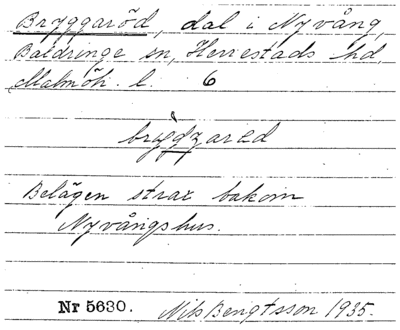 Bryggaröd, dal i Nyvång,
Baldringe sn, Herrestads hd,
Malmöh. l. 6
Belägen strax bakom
Nyvångshus.
Nr 5630. Nils Bengtsson 1935.